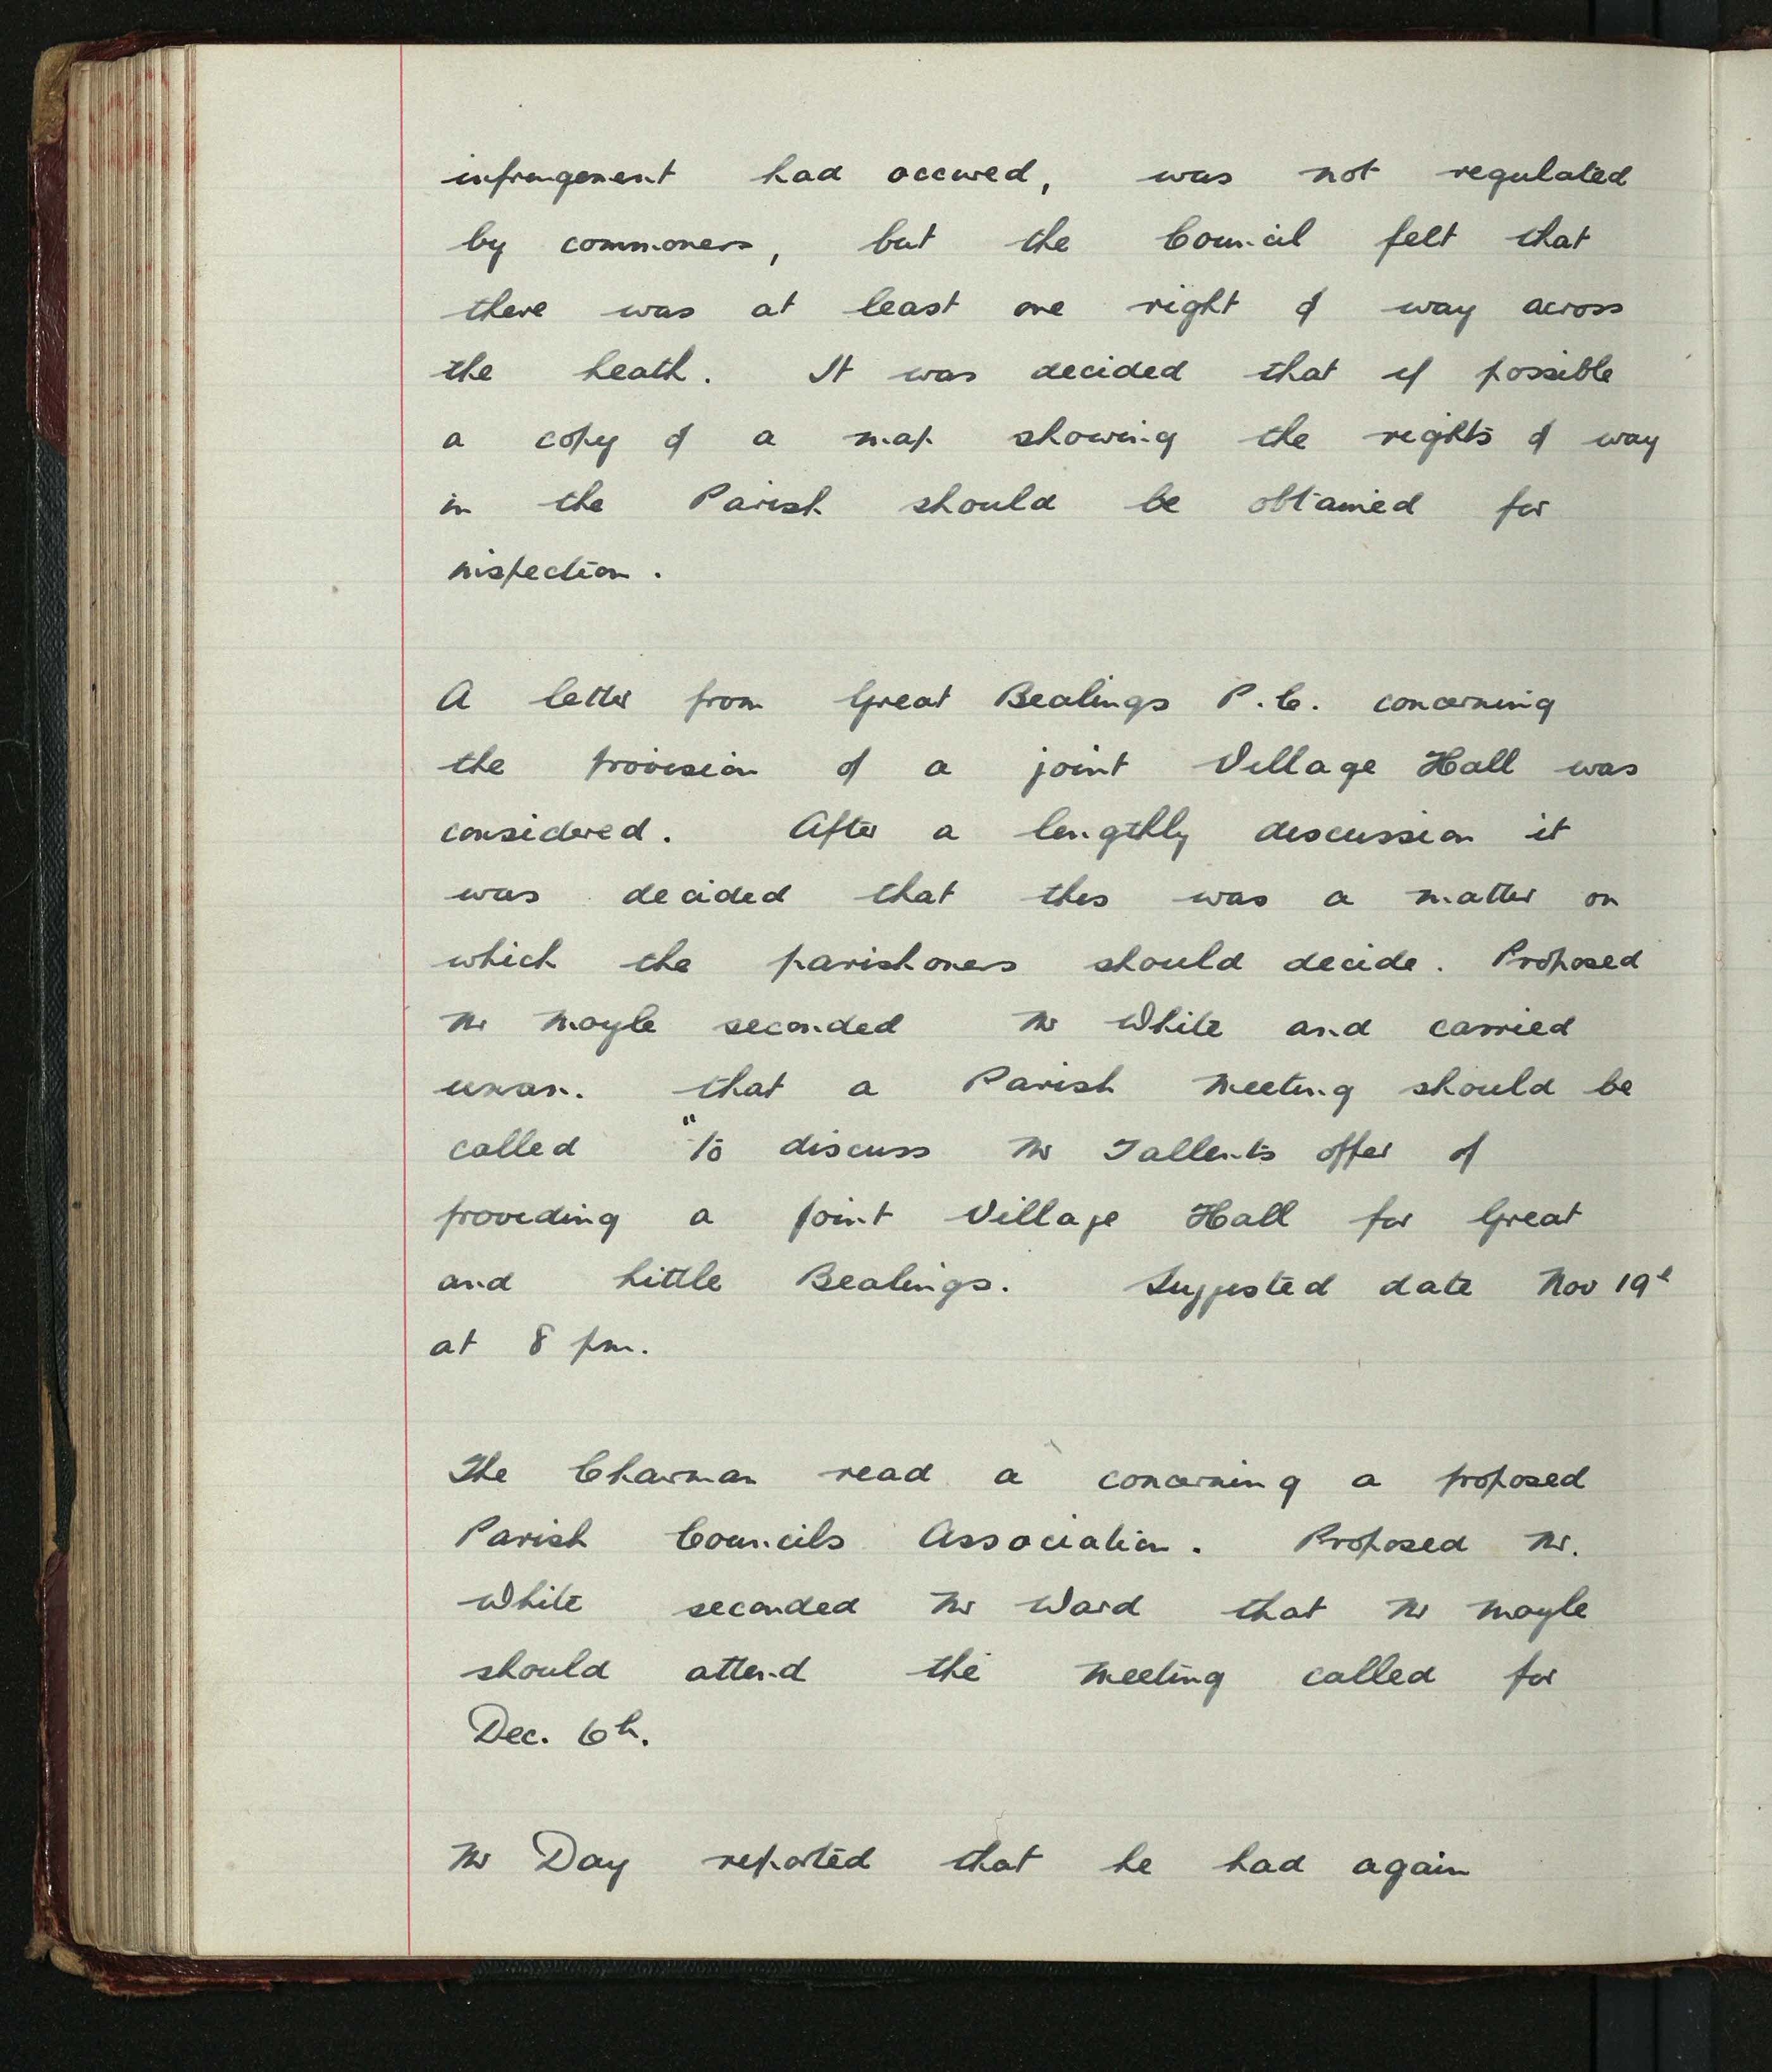 infrengement had occured, was not regulated
by commoners, but the Council felt that
there was at least one right of way across
the heath. It was decided that if possible
a copy of a map showing the rights of way
in the Parish should be obtained for
inspection.
A letter from Great Bealings P.C. concerning
the provision of a joint Village Hall was
considered. After a lengthly discussion it
was decided that this was a matter on
which the parishoners should decide. Proposed
Mr Moyle seconded Mr White and carried
unan. that a Parish Meeting should be
called "to discuss Mr Tallents offer of
providing a joint Village Hall for Great
and Little Bealings. Suggested date Nov 19th
at 8 pm.
The Chairman read a concerning a proposed
Parish Councils Association. Proposed Mr.
White seconded Mr Ward that Mr Moyle
should attend the Meeting called for
Dec. 6th.
Mr Day reported that he had again